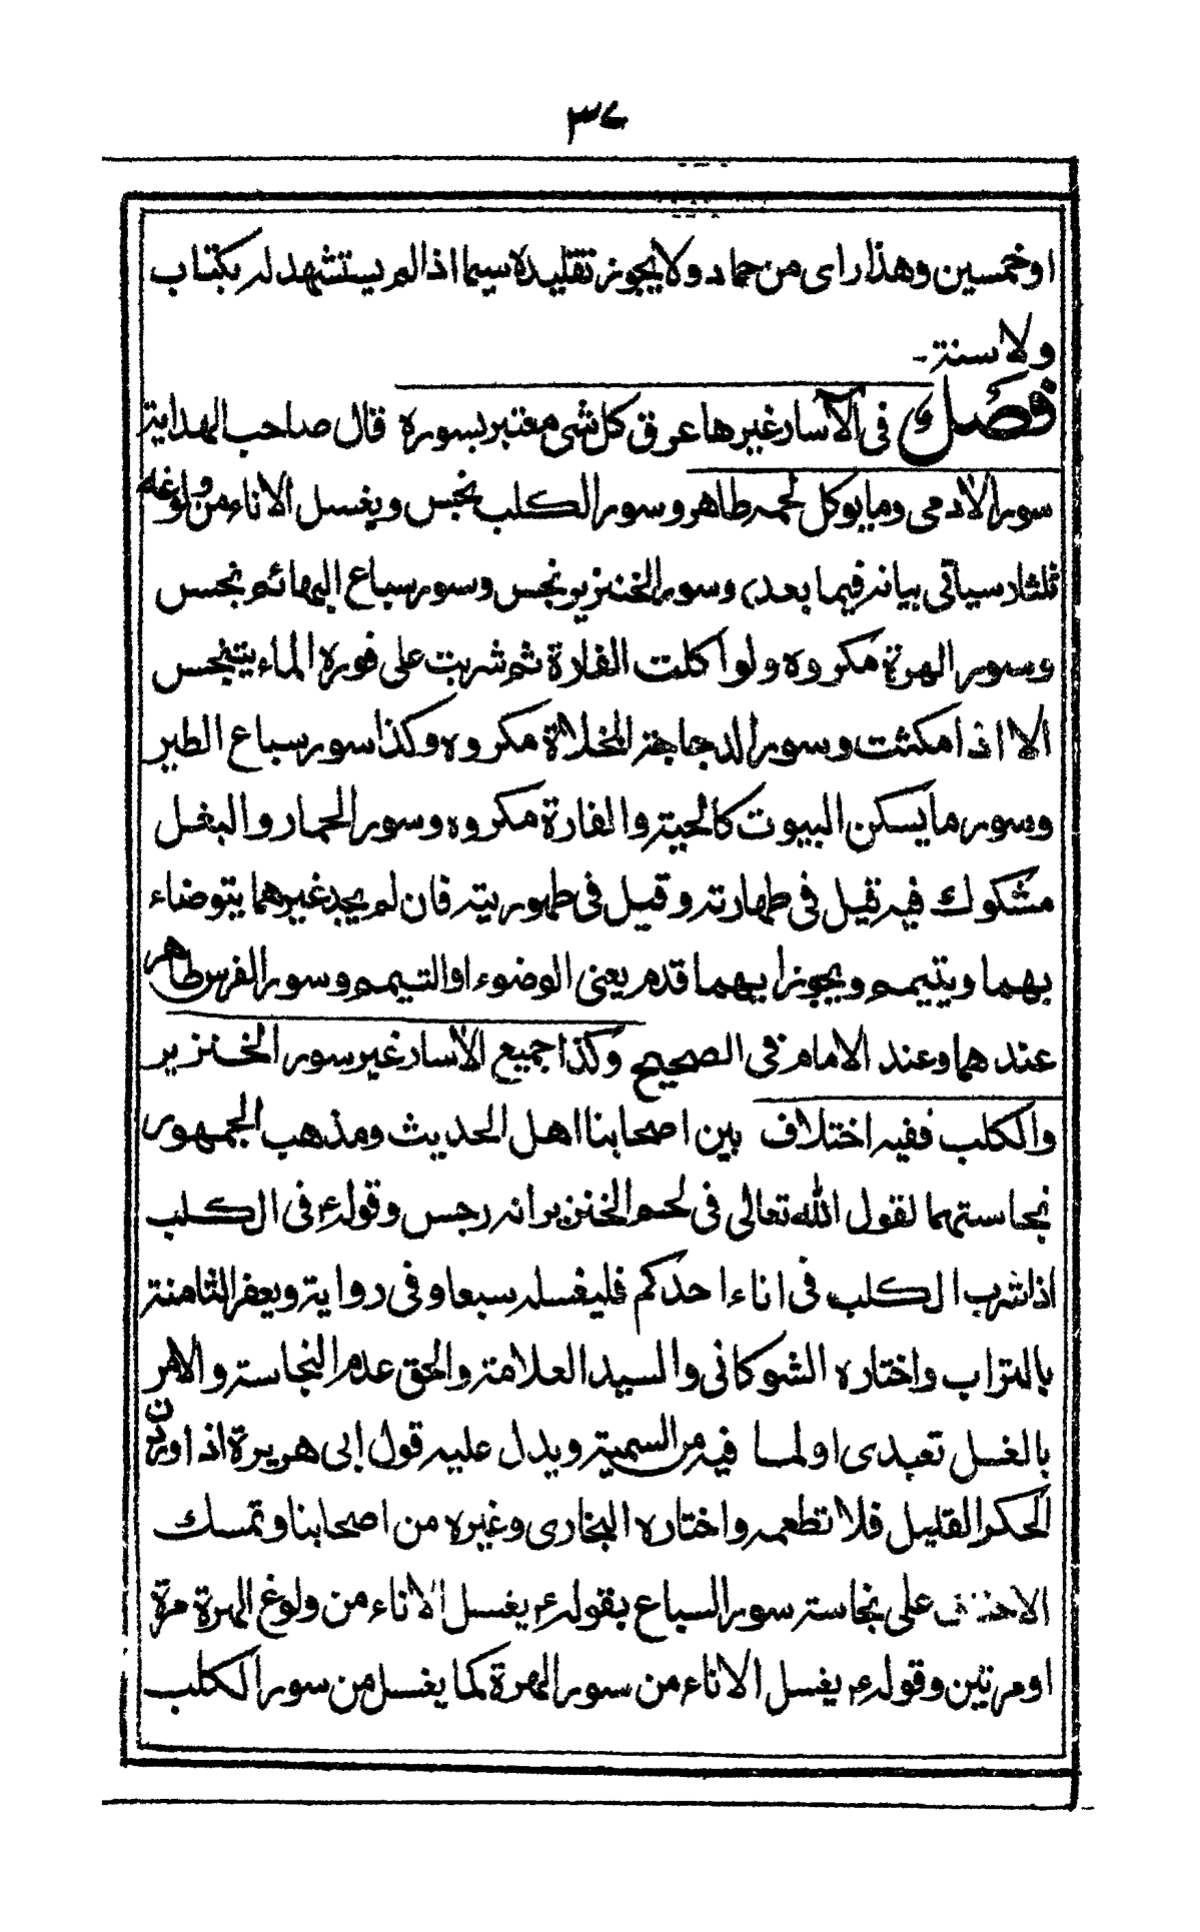 ٣٧
او خمسين وهذا راى من حماد ولا يجوز تقليده سيما اذا لم يستشهد له بكتاب
ولا سنة -
فصل فى الآسار غيرها عرق كل شى معتبر بسوره قال صاحب الهداية
سور الادمى وما يوكل لحمه طاهر وسور الكلب نجس ويغسل الاناء من ولوغه
ثلثا دسياتى بيانه فيما بعد) وسور الخنزير نجس وسور سباع البهائم نجس
وسور الهرة مكروه ولو اكلت الفارة ثم شربت على فوره الماء يتنجس
الا اذا مكثت وسور الدجاجة المخلاة مكروه وكذا سور سباع الطير
وسور ما يسكن البيوت كالحية والفارة مكروه وسور الحمار والبغل
مشكوك فيه قيل فى طهارته وقيل فى طهوريته فان لم يجد غيرهما يتوضاء
بهما ويتيمم ويجوز ايهما قدم يعنى الوضوء او التيمم وسور الفرس طاهر
عندهما وعند الامام فى الصحيح وكذا جميع الأسار غير سور الخنزير
والكلب ففيه اختلاف بين اصحابنا اهل الحديث ومذهب الجمهور
نجاستهما لقول الله تعالى فى لحم الخنزير انه رجس وقوله ع فى الكلب
اذا شرب الكلب فى اناء احدكم فليغسله سبعا وفى رواية ويعفر الثامنة
بالتراب واختاره الشوكانى والسيد العلامة والحق عدم النجاسة والامر
بالغسل تعبدى او لما فيه من السمية ويدل عليه قول ابى هريرة اذا اورثن
الحكر القليل فلا تطعمه واختاره البخارى وغيره من اصحابنا وتمسك
الاحناف على نجاسة سور السباع بقوله ع يغسل الاناء من ولوغ الهرة مرة
او مرتين وقوله ع يغسل الاناء من سور الهرة كما يغسل من سور الكلب